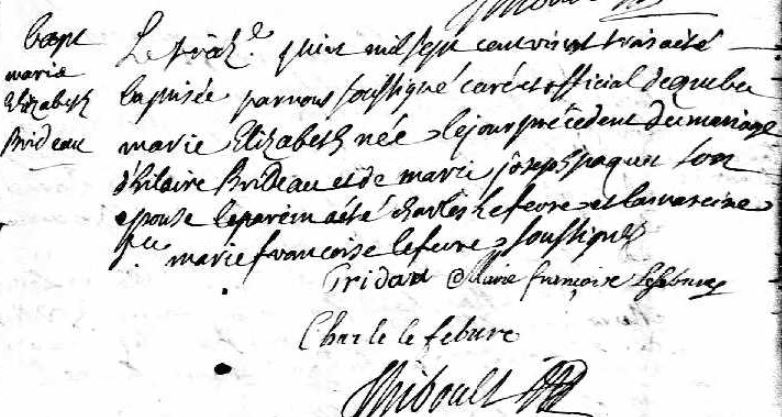 bapt
marie
Elizabeth
Brideau
Le juin mil sept cent vingt trois a été
baptisée par nous soussigné curé et official de quebec
marie Elizabeth née le jour précédent du mariage
d'hilaire Brideau et de marie joseph paquet son
epouse le parein a été charles Lefevre et la mareine
marie francoise lefevre soussignés
Bridau Marie françoise Lefebure
Charle le febure
Thiboult